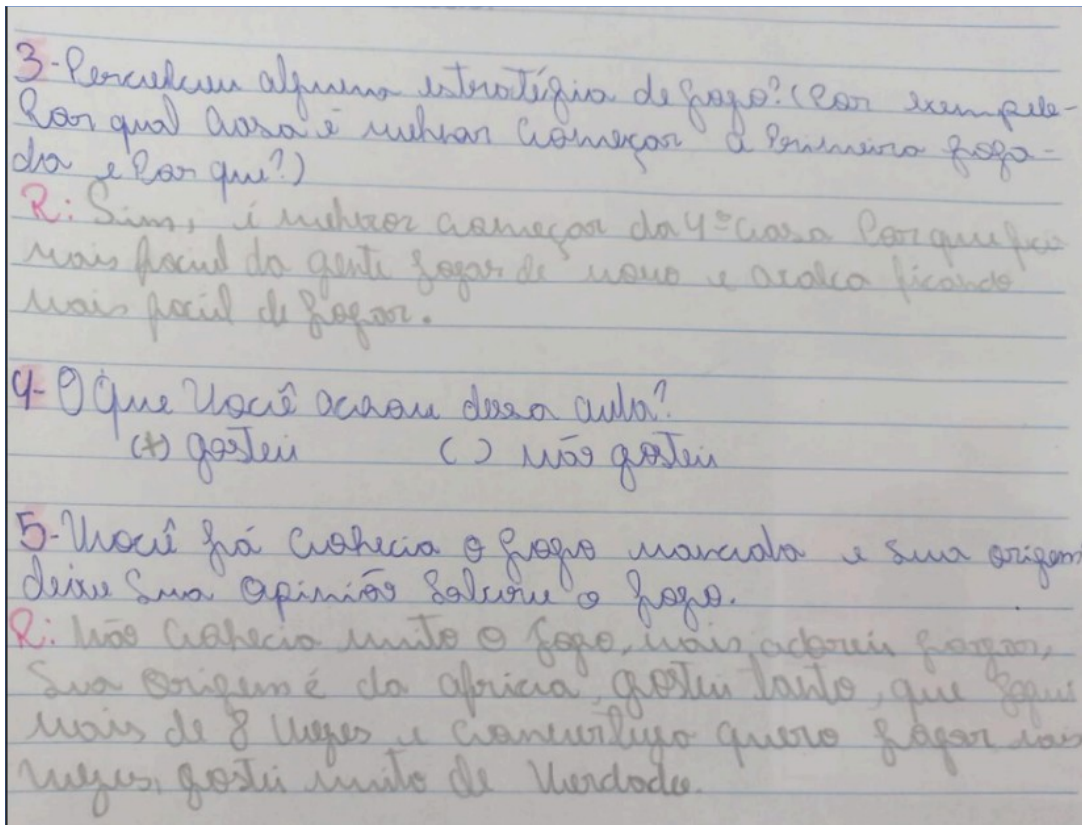 3-Percebeu alguma estratégia de jogo? (Por exemplo-
Por qual casa é melhor começar a Primeira joga-
da e Por que?)
R: Sim, é melhor começar da 4º casa Porque fica
mais facil da gente jogar de novo e acaba ficando
mais facil de jogar.
4-O que Você achou dessa aula?
(+) gostei ( ) não gostei
5-Você já conhecia o jogo mancala e sua origem
deixe Sua opinião Sobre o jogo.
R: Não conhecia muito o jogo, mais adorei jogar,
Sua origem é da africa, gostei tanto, que joguei
mais de 8 vezes e com certeza quero jogar mais
vezes, gostei muito de Verdade.